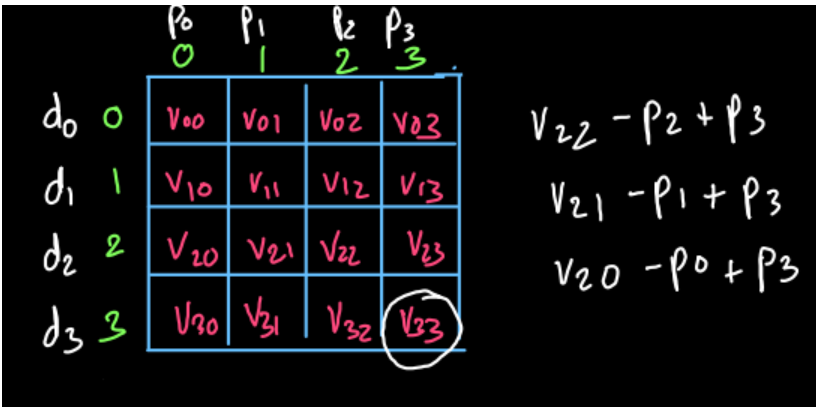 p0 p1 p2 p3
0 1 2 3
d0 0 v00 v01 v02 v03
d1 1 v10 v11 v12 v13
d2 2 v20 v21 v22 v23
d3 3 v30 v31 v32 v33
v22 - p2 + p3
v21 - p1 + p3
v20 - p0 + p3